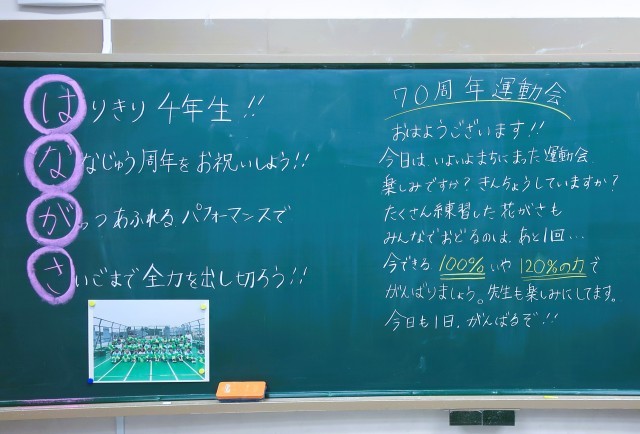 はりきり4年生!!
ななじゅう周年をお祝いしよう!!
がっつあふれるパフォーマンスで
さいごまで全力を出し切ろう!!
70周年運動会
おはようございます!!
今日は、いよいよまちにまった運動会。
楽しみですか?きんちょうしていますか?
たくさん練習した花がさも
みんなでおどるのは、あと1回…
今できる100%いや120%の力で
がんばりましょう。先生も楽しみにしてます。
今日も1日、がんばるぞ!!